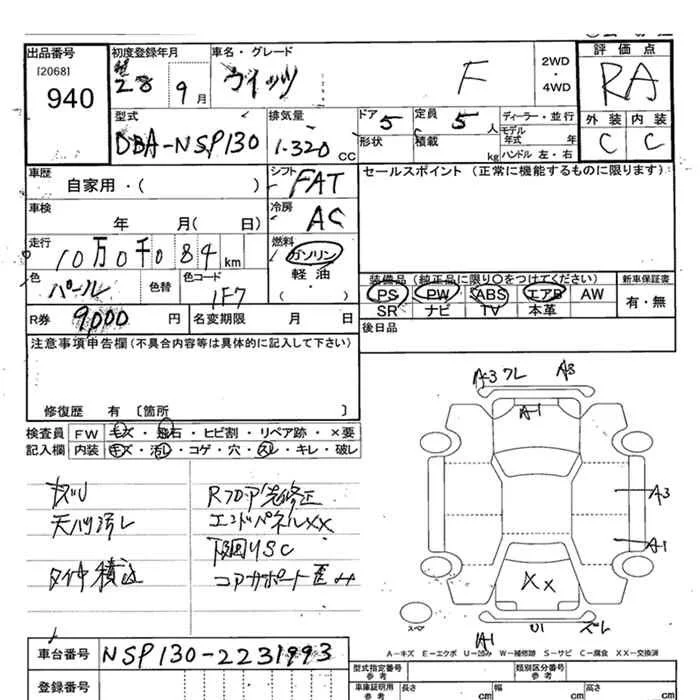 出品番号 初度登録年月 車名・グレード 評価点
[2068]
940
28 9月 ヴィッツ F 2WD・4WD RA
型式 排気量 ドア 定員 ディーラー・並行 外装 内装
DBA-NSP130 1.320 cc 5 5人 モデル年式 年 C C
形状 積載 kg ハンドル 左・右
車歴 自家用・( ) シフト FAT セールスポイント (正常に機能するものに限ります)
車検 年 月( 日) 冷房 AC
走行 10万0千084 km 燃料 ガソリン
軽油
( ・ )
色 パール 色替 色コード 1F7
装備品 (純正品に限り○をつけてください) 新車保証書
PS PW ABS エアB AW 有・無
SR ナビ TV 本革
R券 9,000 円 名変期限 月 日 後日品
注意事項申告欄(不具合内容等は具体的に記入して下さい)
修復歴 有 〔箇所 〕
検査員 FW 毛ズ・飛石・ヒビ割・リペア跡・×要
記入欄 内装 キズ・汚レ・コゲ・穴・スレ・キレ・破レ
天バリ汚レ エンドパネルXX
下回りSC
積込 コアサポート歪み
A3 ワレ A3
A1
A3
A1
XX
A1 U1 ズレ
スペア
A-キズ E-エクボ U-凹み W-補修跡 S-サビ C-腐食 XX-交換済
車台番号 NSP130-2231993
登録番号
型式指定番号 参考 類別区分番号 参考
車庫証明用 参考 長さ cm 幅 cm 高さ cm